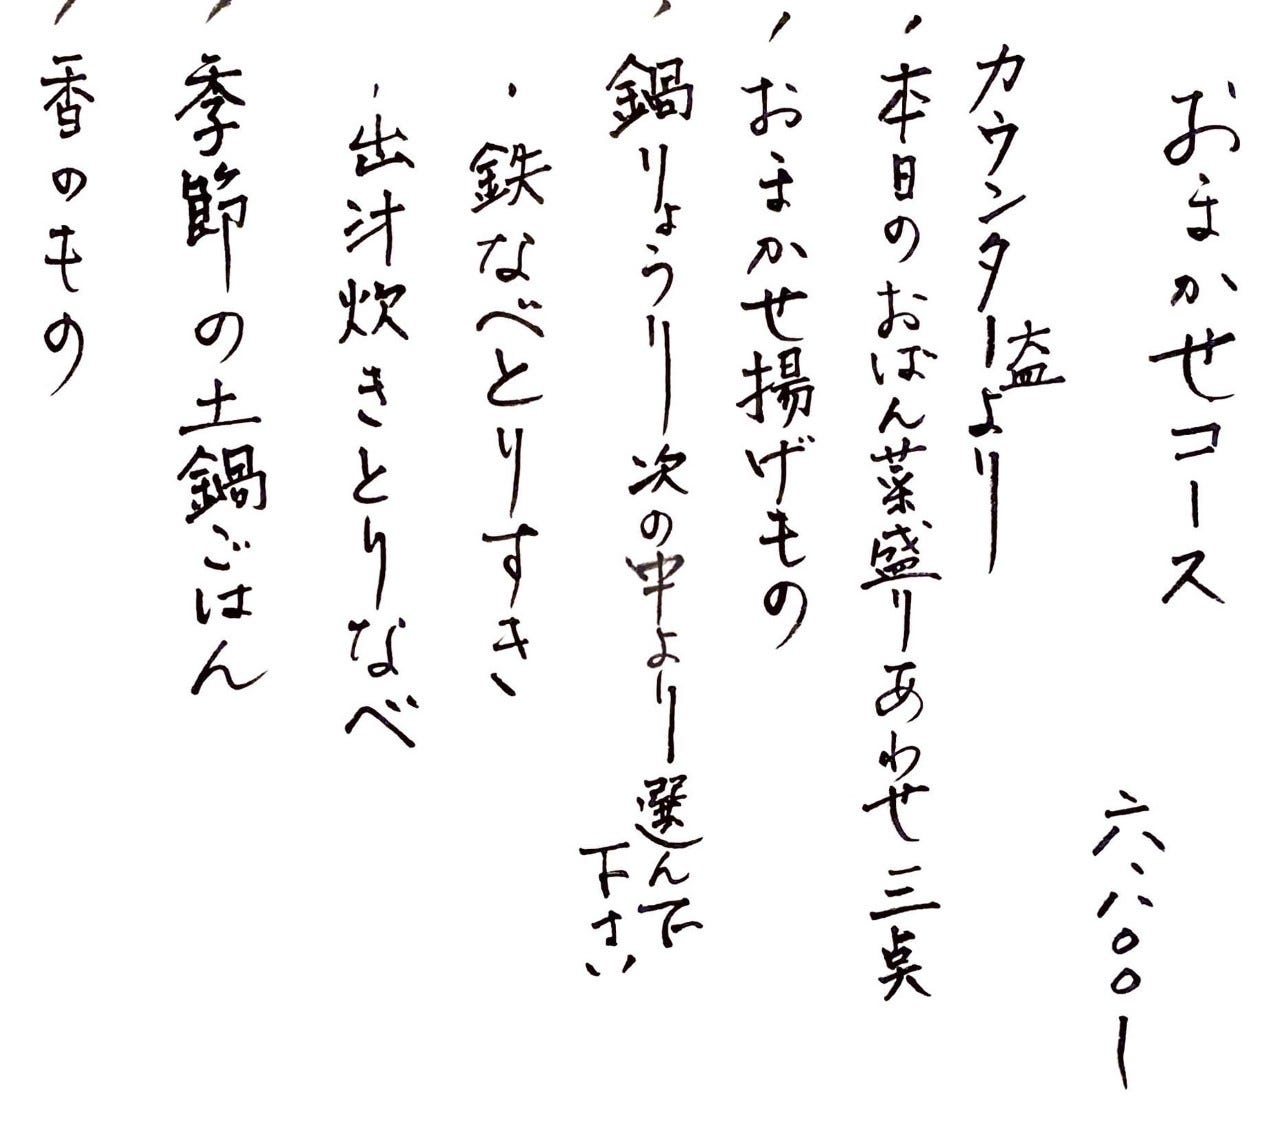 おまかせコース
六、八〇〇ー
カウンター大皿より
・本日のおばん菜盛りあわせ三点
・おまかせ揚げもの
・鍋りょうりー次の中より選んで下さい
・鉄なべとりすき、
・出汁炊きとりなべ
・季節の土鍋ごはん
・香のもの